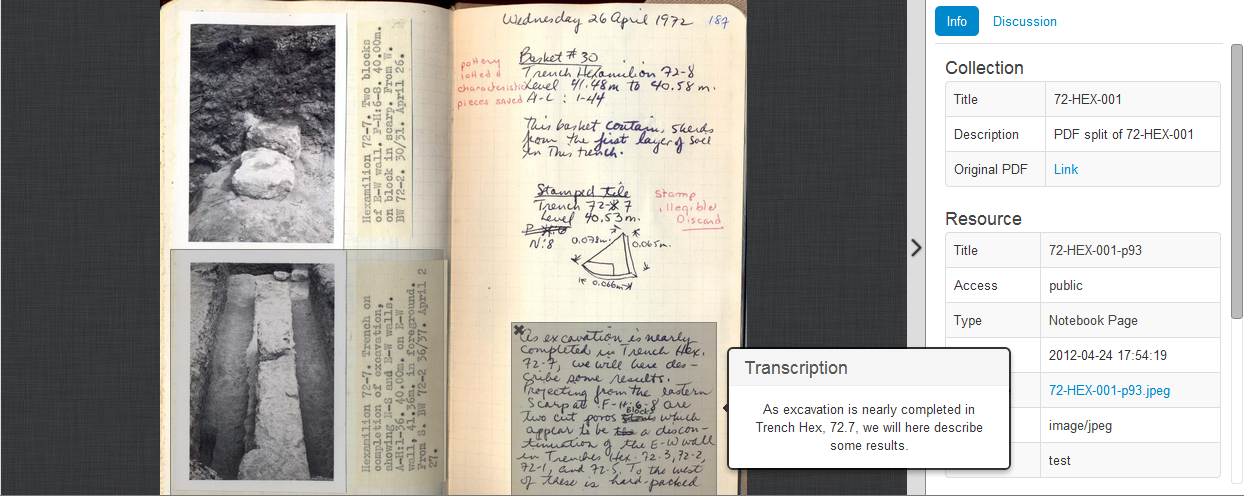 Hexamilion 72-7. Two blocks
of E-W wall. F-H:6-8. 40.00m.
on block in scarp. From W.
BW 72-2. 30/31. April 26.
Hexamilion 72-7. Trench on
completion of excavation,
showing and E-W walls.
A-H:1-36. 40.00m. on E-W
wall, 41.36m. in foreground.
From S. BW 72-2 36/37. April 2
27.
Wednesday 26 April 1972 187
Basket #30
Trench Hexamilion 72-8
Level 41.48m to 40.58m.
A-L : 1-44
pottery
lotted &
characteristic
pieces saved
This basket contains sherds
from the first layer of soil
in this trench.
Stamped tile
Trench 72-7
Level 40.53m.
N:8
Stamp
illegible
Discard
0.078m.
0.065m.
0.066m
As excavation is nearly
completed in Trench Hex.
72-7, we will here des-
cribe some results.
Projecting from the eastern
Scarp at F-H:6-8 are
two cut poros Blocks which
appear to be a discon-
tinuation of the E-W wall
in Trenches Hex. 72-3, 72-2,
72-1, and 72-5. To the west
of these is hard-packed
Transcription
As excavation is nearly completed in
Trench Hex, 72.7, we will here describe
some results.
Info Discussion
Collection
Title 72-HEX-001
Description PDF split of 72-HEX-001
Original PDF Link
Resource
Title 72-HEX-001-p93
Access public
Type Notebook Page
2012-04-24 17:54:19
72-HEX-001-p93.jpeg
image/jpeg
test